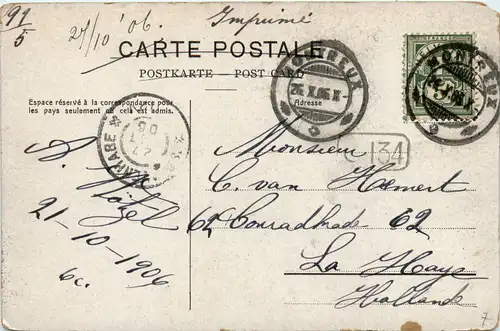 99/5
27/10 '06.
Imprimé
CARTE POSTALE
POSTKARTE — POST CARD
Espace réservé à la correspondance pour
les pays seulement où cela est admis.
Adresse
MONTREUX
26.X.06.X-
MONTREUX
134
Monsieur
C. van
62 62
La Haye
Hollande
A.
21-10-1906
6c.
7